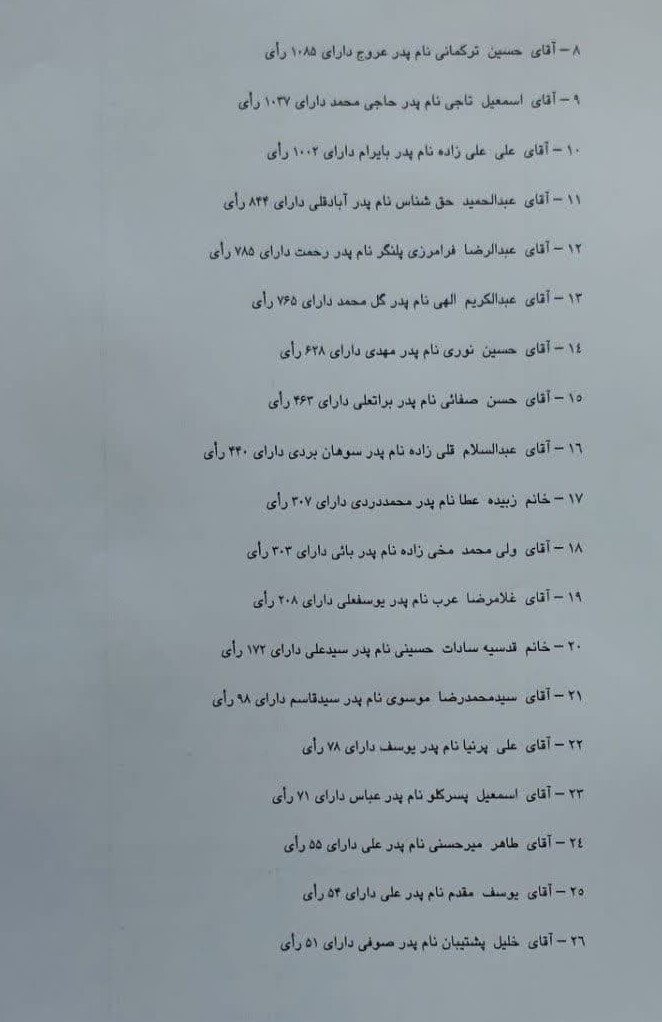 ۸ – آقای حسین ترکمانی نام پدر عروج دارای ۱۰۸۵ رأی
۹ – آقای اسمعیل تاجی نام پدر حاجی محمد دارای ۱۰۳۷ رأی
۱۰ – آقای علی علی زاده نام پدر بایرام دارای ۱۰۰۲ رأی
۱۱ – آقای عبدالحمید حق شناس نام پدر آبادقلی دارای ۸۴۴ رأی
۱۲ – آقای عبدالرضا فرامرزی پلنگر نام پدر رحمت دارای ۷۸۵ رأی
۱۳ – آقای عبدالکریم الهی نام پدر گل محمد دارای ۷۶۵ رأی
۱٤ – آقای حسین نوری نام پدر مهدی دارای ۶۲۸ رأی
۱۵ – آقای حسن صفائی نام پدر براتعلی دارای ۴۶۳ رأی
۱٦ – آقای عبدالسلام قلی زاده نام پدر سوهان بردی دارای ۴۴۰ رأی
۱۷ – خانم زبیده عطا نام پدر محمددردی دارای ۳۰۷ رأی
۱۸ – آقای ولی محمد مخی زاده نام پدر بائی دارای ۳۰۳ رأی
۱۹ – آقای غلامرضا عرب نام پدر یوسفعلی دارای ۲۰۸ رأی
۲۰ – خانم قدسیه سادات حسینی نام پدر سیدعلی دارای ۱۷۲ رأی
۲۱ – آقای سیدمحمدرضا موسوی نام پدر سیدقاسم دارای ۹۸ رأی
۲۲ – آقای علی پرنیا نام پدر یوسف دارای ۷۸ رأی
۲۳ – آقای اسمعیل پسرکلو نام پدر عباس دارای ۷۱ رأی
۲٤ – آقای طاهر میرحسنی نام پدر علی دارای ۵۵ رأی
۲۵ – آقای یوسف مقدم نام پدر علی دارای ۵۴ رأی
۲٦ – آقای خلیل پشتیبان نام پدر صوفی دارای ۵۱ رأی